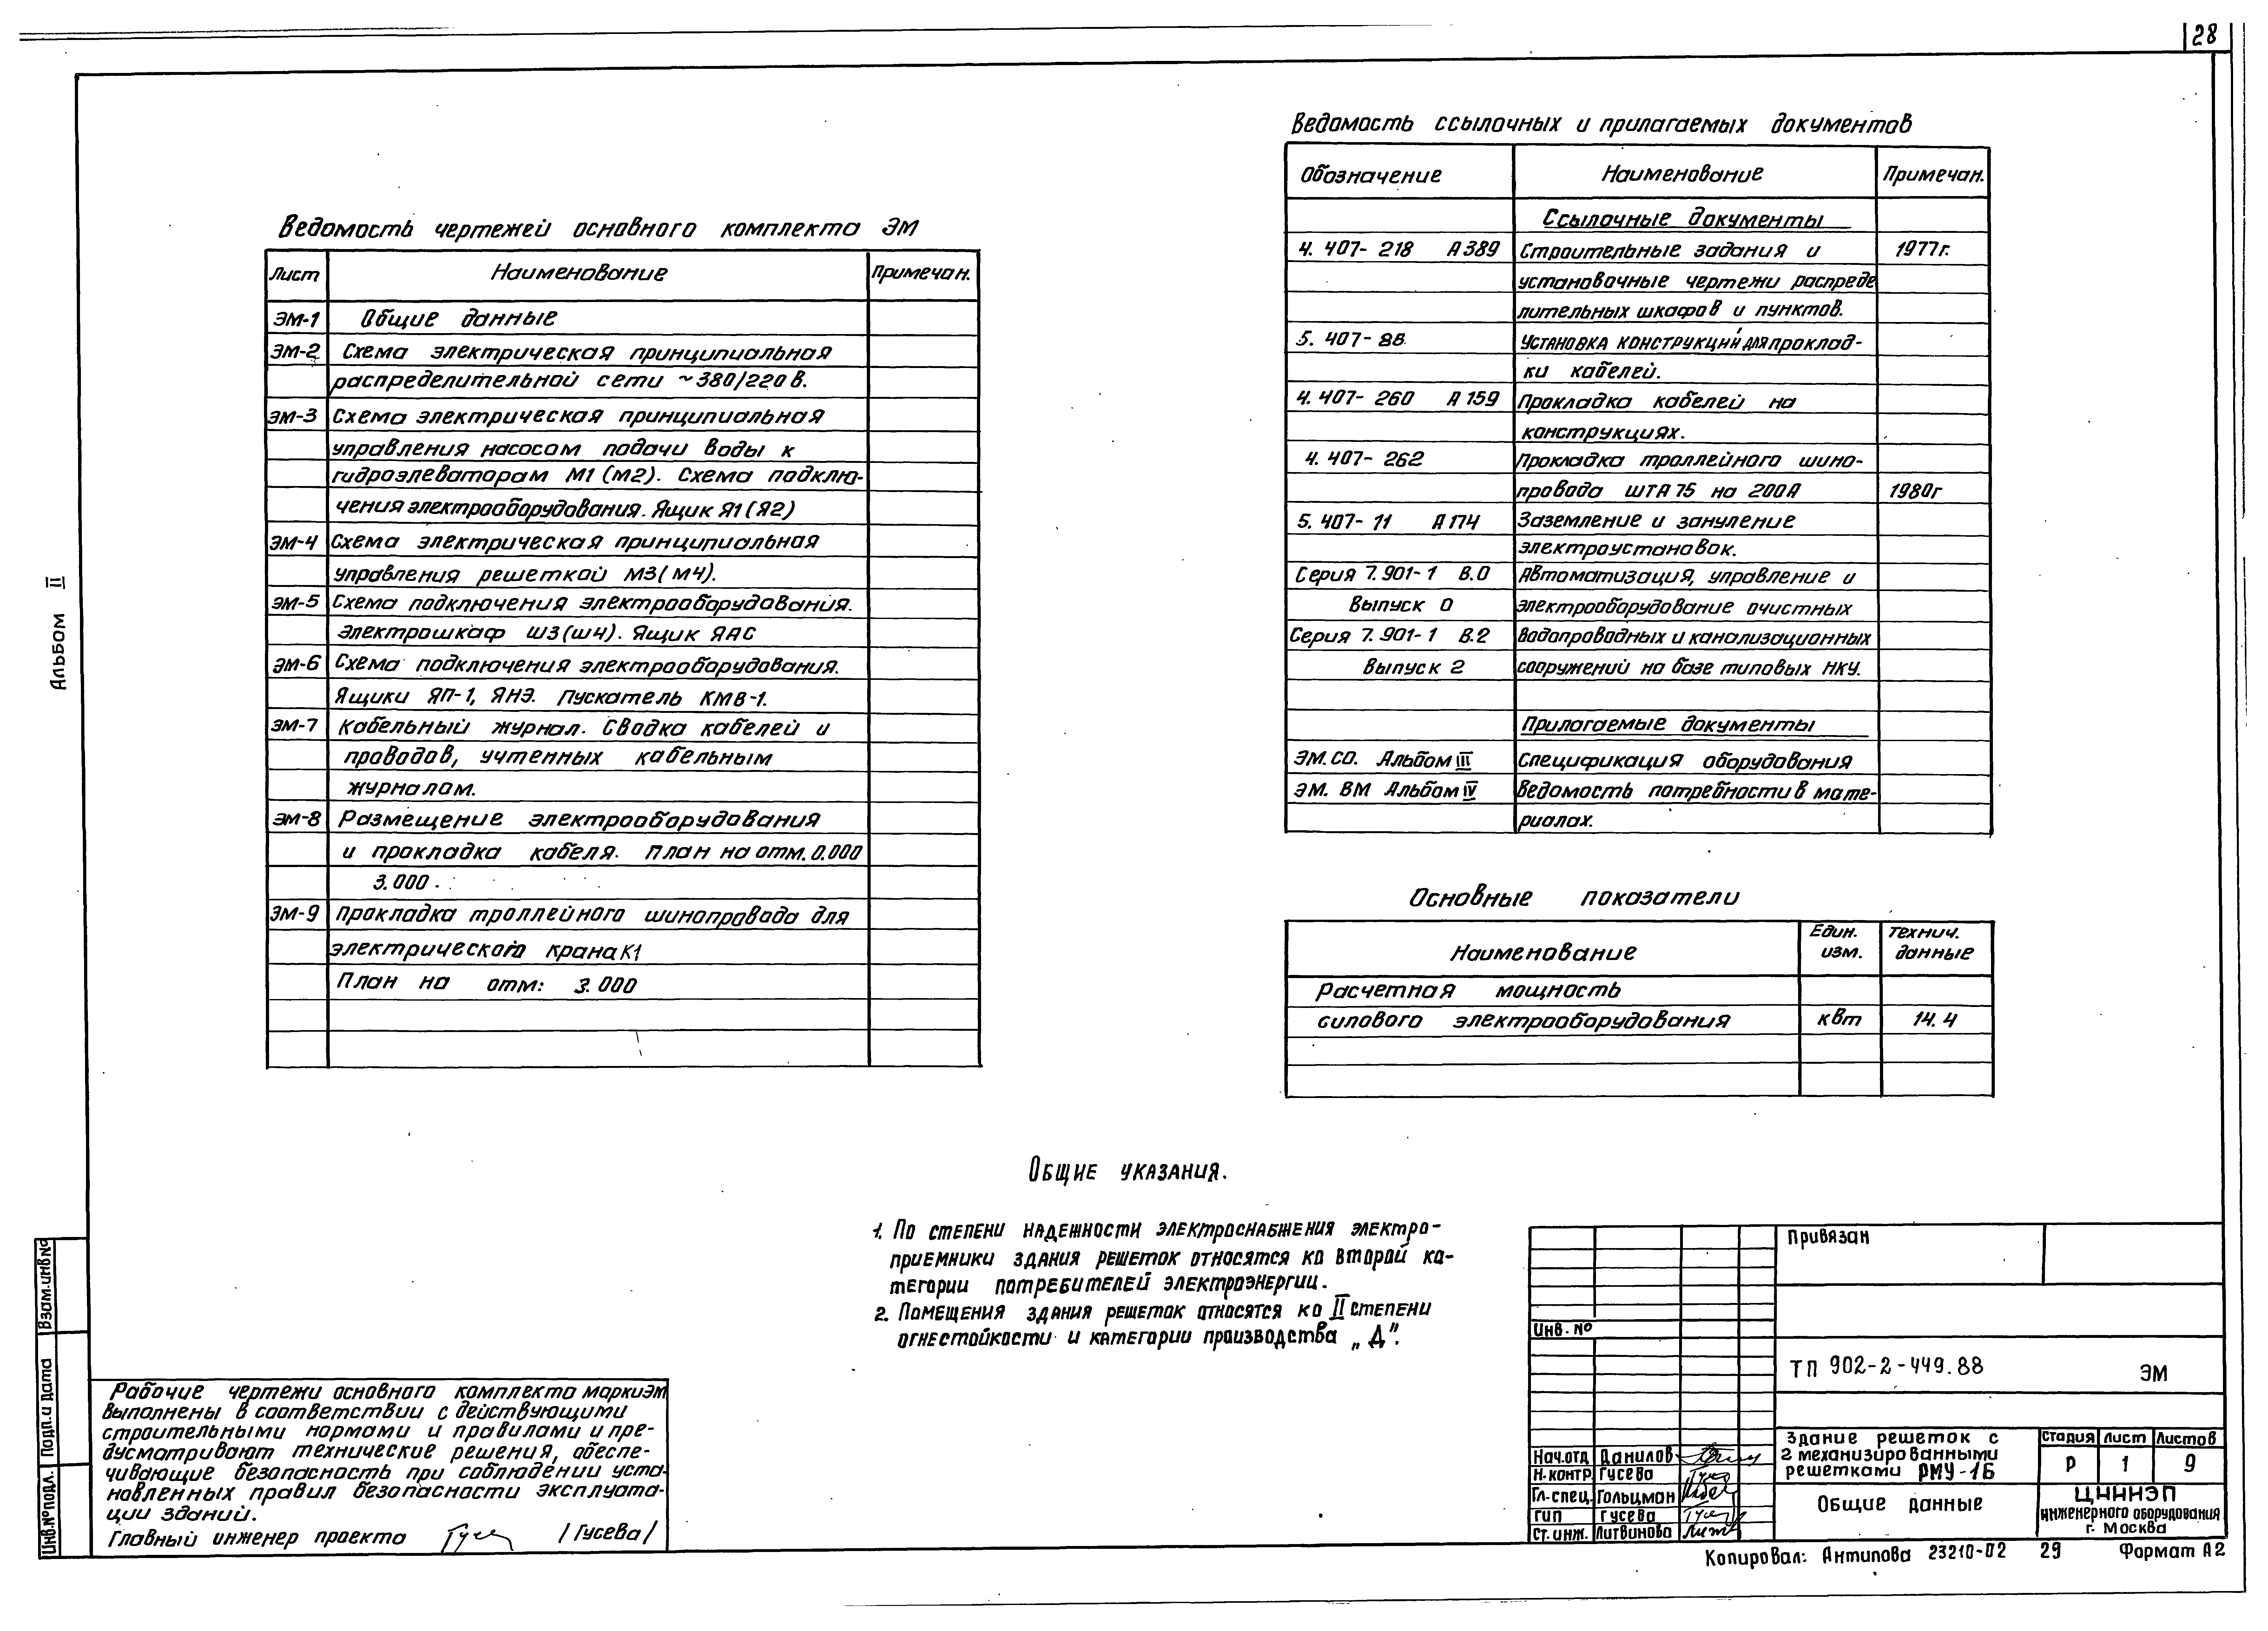 28
Альбом II
Ведомость чертежей основного комплекта ЭМ
Лист Наименование Примечан.
ЭМ-1 Общие данные
ЭМ-2 Схема электрическая принципиальная
распределительной сети ~380/220 в.
ЭМ-3 Схема электрическая принципиальная
управления насосом подачи воды к
гидроэлеваторам М1 (М2). Схема подклю-
чения электрооборудования. Ящик Я1 (Я2)
ЭМ-4 Схема электрическая принципиальная
управления решеткой М3 (М4).
ЭМ-5 Схема подключения электрооборудования.
Электрошкаф Ш3 (Ш4). Ящик ЯАС
ЭМ-6 Схема подключения электрооборудования.
Ящики ЯП-1, ЯНЭ. Пускатель КМВ-1.
ЭМ-7 Кабельный журнал. Сводка кабелей и
проводов, учтенных кабельным
журналом.
ЭМ-8 Размещение электрооборудования
и прокладка кабеля. План на отм. 0.000
3.000.
ЭМ-9 Прокладка троллейного шинопровода для
электрического крана К1
План на отм: 3.000
Ведомость ссылочных и прилагаемых документов
Обозначение Наименование Примечан.
Ссылочные документы
4.407-218 А389 Строительные задания и 1977г.
установочные чертежи распреде
лительных шкафов и пунктов.
5.407-88 Установка конструкций для проклад-
ки кабелей.
4.407-260 А159 Прокладка кабелей на
конструкциях.
4.407-262 Прокладка троллейного шино-
провода ШТА 75 на 200А 1980г
5.407-11 А174 Заземление и зануление
электроустановок.
Серия 7.901-1 В.0 Автоматизация, управление и
Выпуск 0 электрооборудование очистных
Серия 7.901-1 В.2 водопроводных и канализационных
Выпуск 2 сооружений на базе типовых НКУ.
Прилагаемые документы
ЭМ.СО. Альбом III Спецификация оборудования
ЭМ.ВМ Альбом IV Ведомость потребности в мате-
риалах.
Основные показатели
Наименование Един. изм. Технич. данные
Расчетная мощность
силового электрооборудования квт 14.4
Общие указания.
1. По степени надежности электроснабжения электро-
приемники здания решеток относятся ко второй ка-
тегории потребителей электроэнергии.
2. Помещения здания решеток относятся ко II степени
огнестойкости и категории производства „Д".
Рабочие чертежи основного комплекта марки ЭМ
выполнены в соответствии с действующими
строительными нормами и правилами и пре-
дусматривают технические решения, обеспе-
чивающие безопасность при соблюдении уста-
новленных правил безопасности эксплуата-
ции зданий.
Главный инженер проекта /Гусева/
Взам.инв№
Подп.и дата
Инв.№подл.
Привязан
Инв.№
ТП 902-2-449.88 ЭМ
Нач.отд Данилов
Н.контр Гусева
Гл-спец. Гольцман
ГИП Гусева
Ст.инж. Литвинова
Здание решеток с
2 механизированными
решетками РМУ-1Б
Стадия Лист Листов
Р 1 9
Общие данные
ЦНИИЭП
инженерного оборудования
г. Москва
Копировал: Антипова 23210-02 29 Формат А2